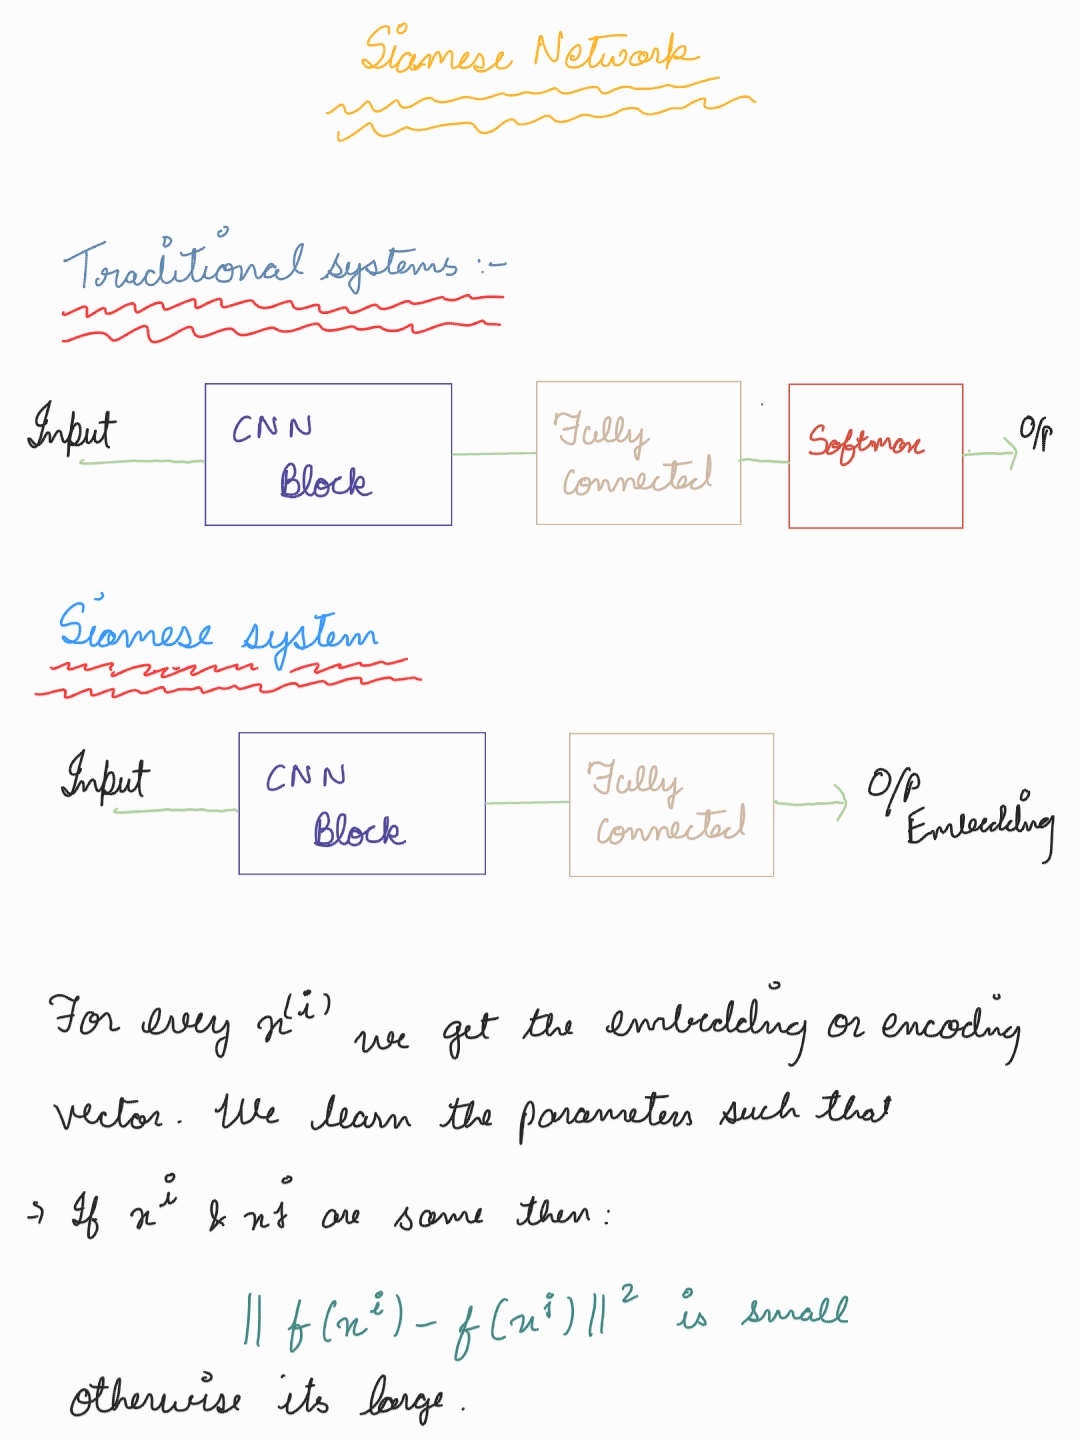 Siamese Network
Traditional systems :-
Input
CNN
Block
Fully
Connected
Softmax
O/p
Siamese system
Input
CNN
Block
Fully
Connected
O/p
Embedding
For every x^(i) we get the embedding or encoding
vector. We learn the parameters such that
⇒ If x^i & x^j are same then:
|| f(x^i) - f(x^j) ||^2 is small
otherwise its large.